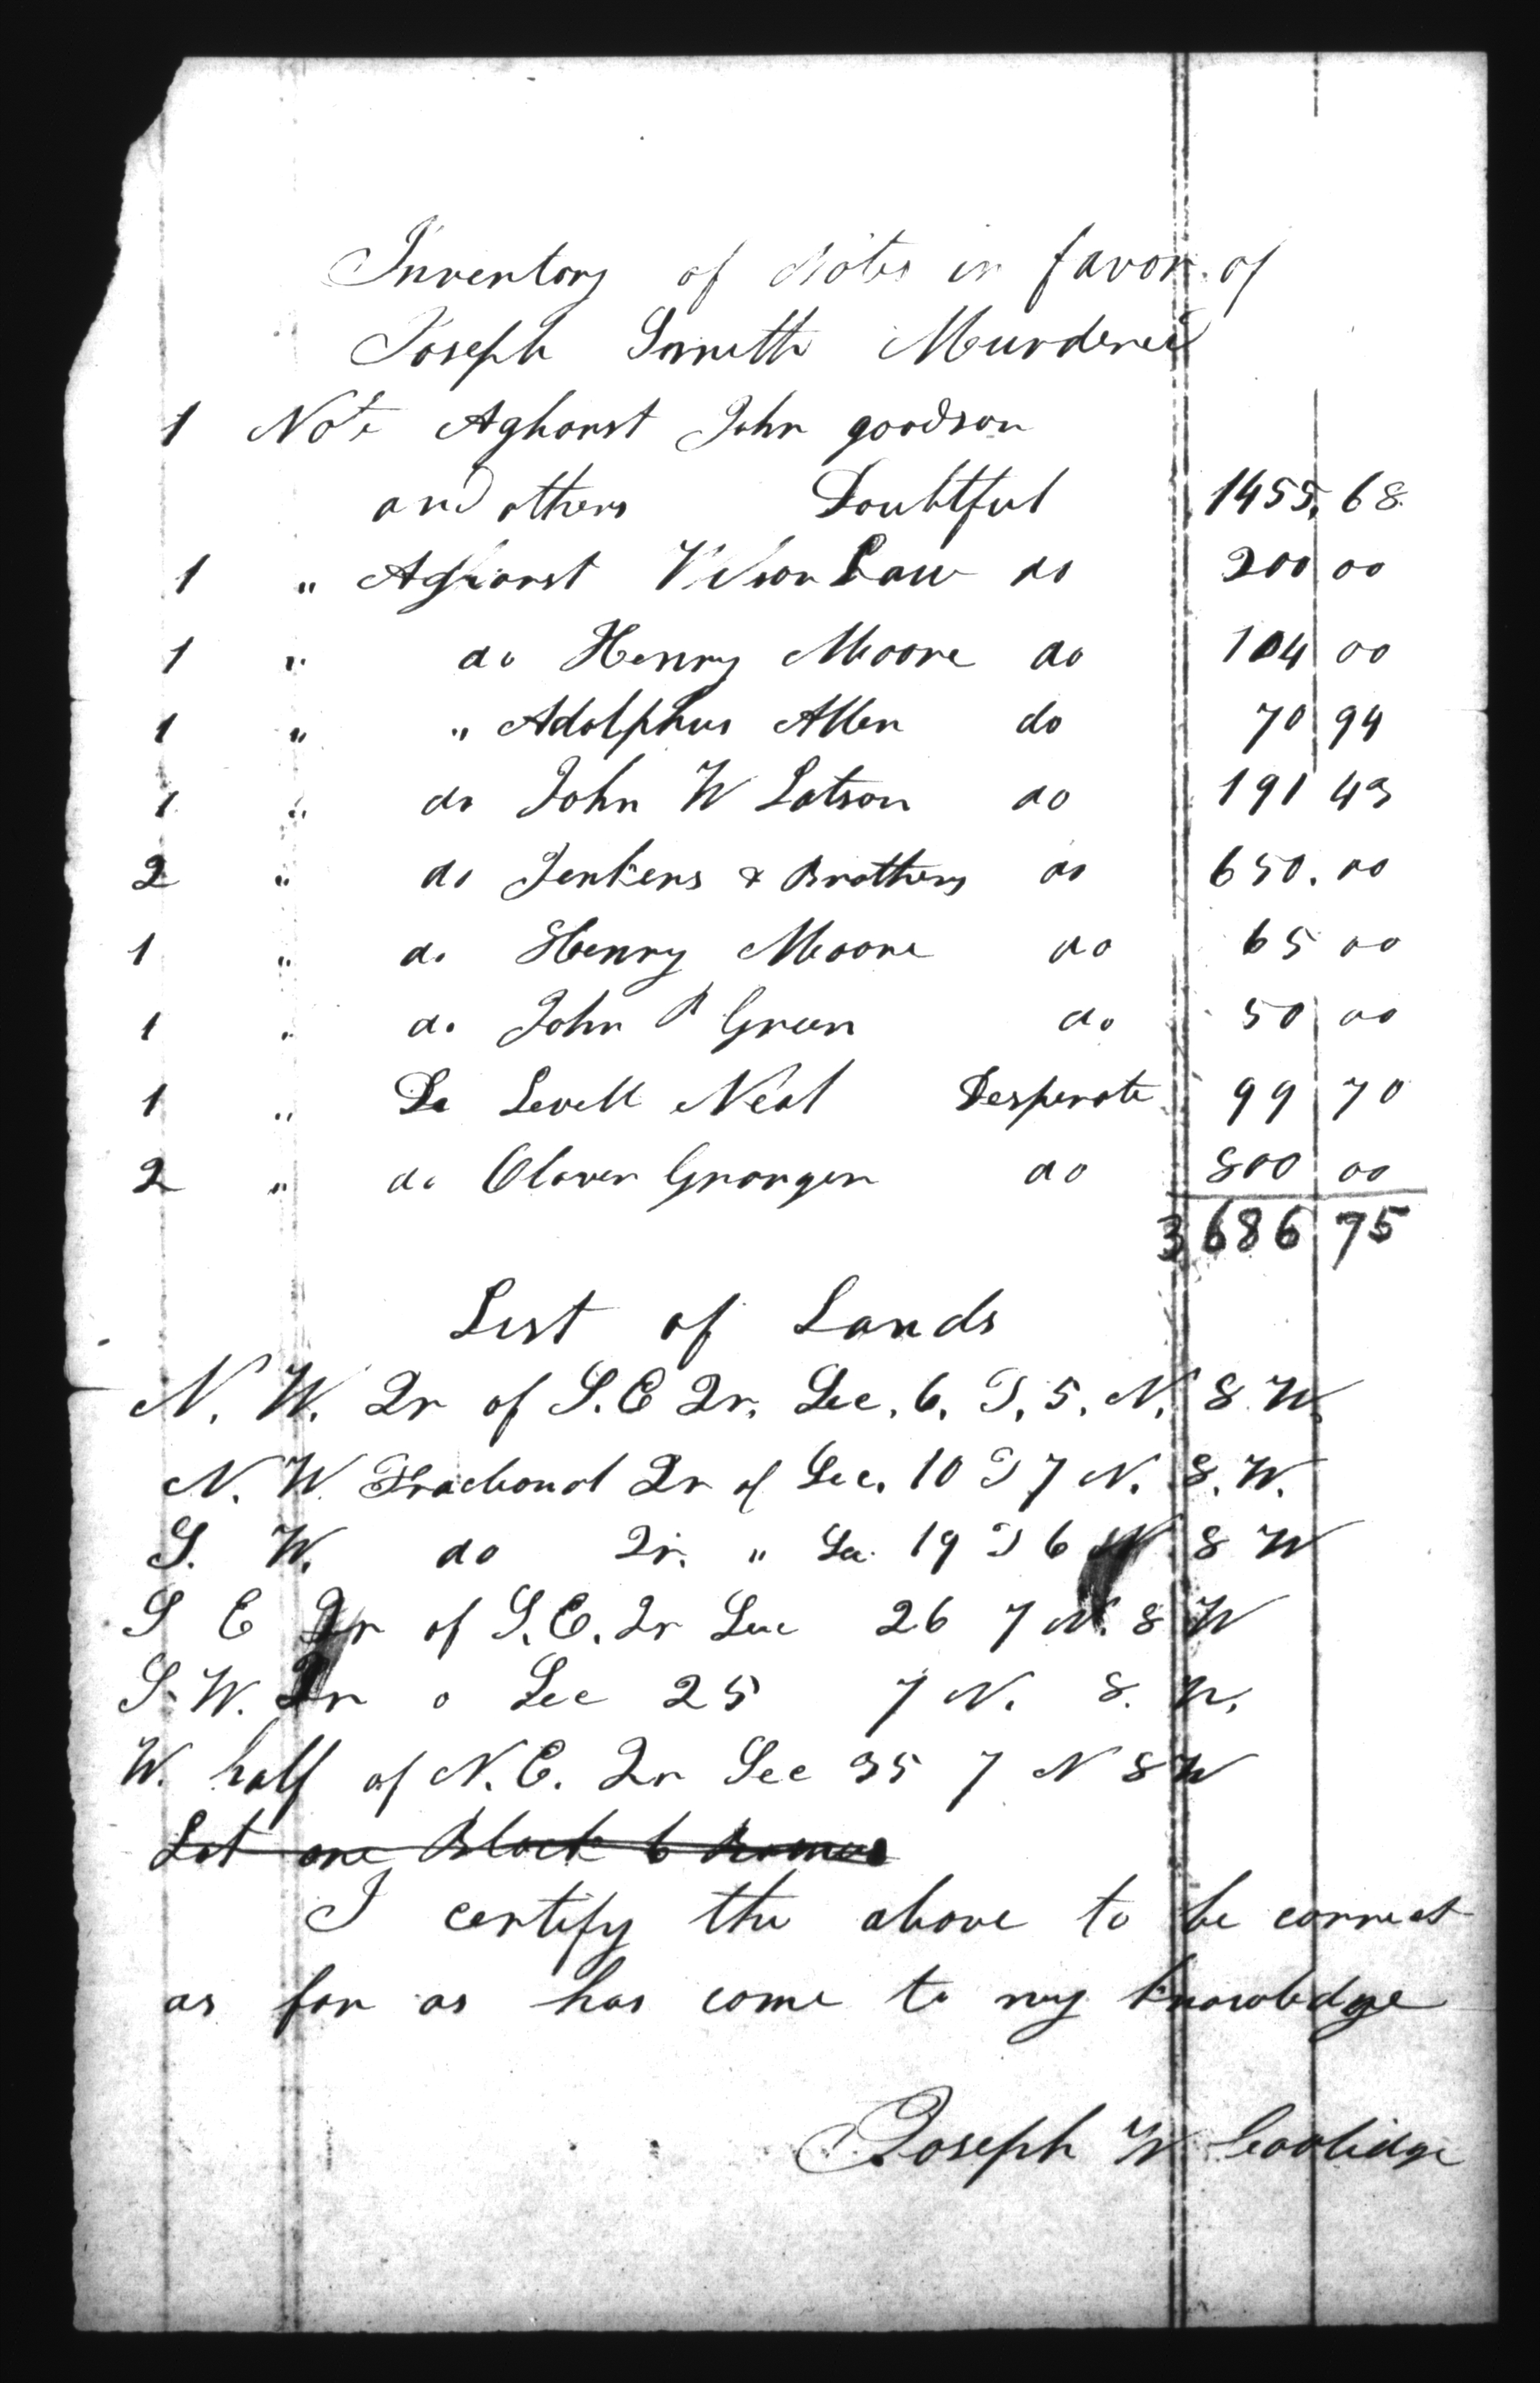 Inventory of Notes in favor of
Joseph Smith Murdered
1 Note Aghanst John goodson
and others Doubtful 1455.68
1 " Aghanst Wilson Law do 200 00
1 " do Henry Moore do 104 00
1 " " Adolphus Allen do 70 94
1 " do John W Latson do 191 43
2 " do Jenkens & Brothers do 650.00
1 " do Henry Moore do 65 00
1 " do John P Green do 50 00
1 " Do Levell Neal Desperate 99 70
2 " do Olover Granger do 800 00
3686 75
List of Lands
N. W. Qr of S. E Qr. Sec. 6. T. 5. N. 8 W.
N. W. Fractional Qr of Sec. 10 T 7 N. 8. W.
S. W. do Qr. " Sec 19 T 6 N. 8 W
S E Qr of S. E. Qr Sec 26 7 N. 8 W
S. W. Qr o Sec 25 7 N. 8. W.
W. half of N. E. Qr Sec 35 7 N 8 W
Lot one Block 6 Ramus
I certify the above to be correct
as far as has come to my knowledge
Joseph W Coolidge